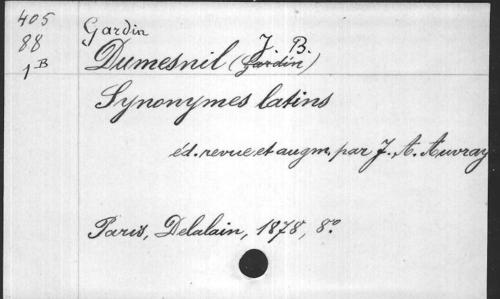 405
88
1B
Gardin
Dumesnil (Gardin) J. B.
Synonymes latins
éd. revue et augm. par J. A. Auvray
Paris, Delalain, 1878, 8º